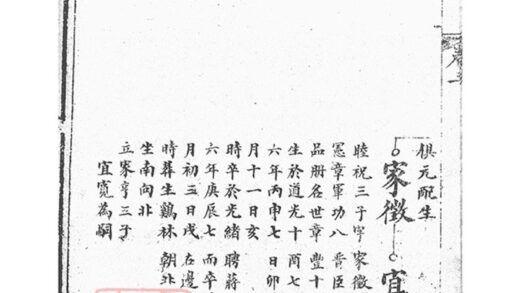 卷一
棋元配生
家徵 宜
睦祝三子字 家徵
憲章軍功八 晋臣
品册名世章 豐十
生於道光十 酉七
六年丙申七 日卯
月十一日亥
時卒於光緒 聘蔣
六年庚辰七 而卒
月初三日戌 在邊
時葬生鷄林 朝北
坐南向北
立家亨三子
宜寬為嗣